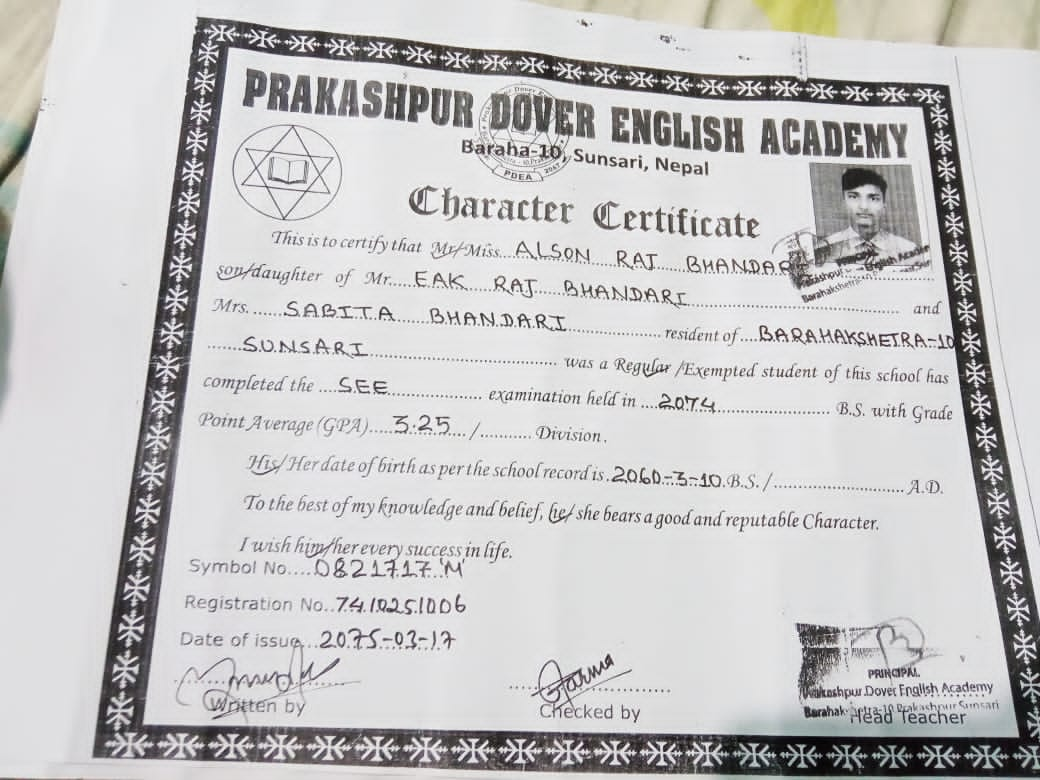 PRAKASHPUR DOVER ENGLISH ACADEMY
Baraha-10, Sunsari, Nepal
PDEA 2067
Character Certificate
This is to certify that Mr/Miss....ALSON RAJ BHANDARI
son/daughter of Mr....EAK RAJ BHANDARI.......... and
Mrs.....SABITA BHANDARI.......... resident of....BARAHAKSHETRA-10
......SUNSARI.......... was a Regular /Exempted student of this school has
completed the ....SEE.......... examination held in ....2074.......... B.S. with Grade
Point Average (GPA)....3.25..../.......... Division.
His/Her date of birth as per the school record is.2060-3-10.B.S. /.......... A.D.
To the best of my knowledge and belief, he/ she bears a good and reputable Character.
I wish him/her every success in life.
Symbol No....0821717 'M'
Registration No..7410251006
Date of issue...2075-03-17
Written by
Sharma
Checked by
PRINCIPAL
Prakashpur Dover English Academy
Barahakshetra-10 Prakashpur Sunsari
Head Teacher